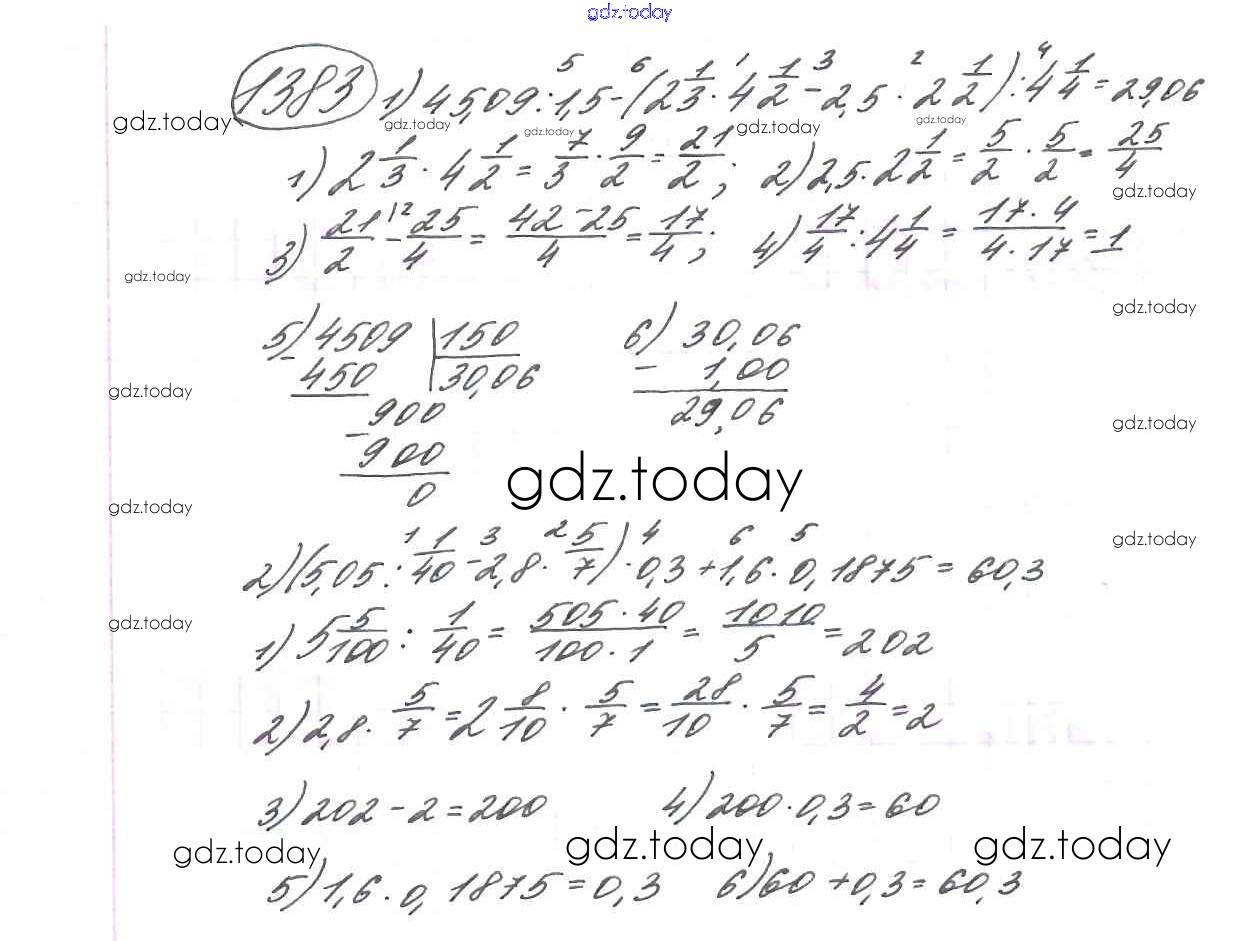 gdz.today
1383 1) 45,09 : 1,5 - (2 1/3 · 4 1/2 - 2,5 · 2 1/2) : 4 1/4 = 29,06
5 6 1 3 2 4
gdz.today gdz.today gdz.today gdz.today gdz.today
1) 2 1/3 · 4 1/2 = 7/3 · 9/2 = 21/2; 2) 2,5 · 2 1/2 = 5/2 · 5/2 = 25/4
gdz.today
3) 21/2 |2 - 25/4 = 42-25/4 = 17/4; 4) 17/4 : 4 1/4 = 17·4/4·17 = 1
gdz.today
gdz.today
5) 4509 | 150 6) 30,06
- 450 | 30,06 - 1,00
gdz.today
- 900 29,06
gdz.today
900
gdz.today
0
gdz.today
gdz.today
1 3 2 4 6 5
2) (5,05 : 1/40 - 2,8 · 5/7) · 0,3 + 1,6 · 0,1875 = 60,3
gdz.today
1) 5 5/100 : 1/40 = 505·40/100·1 = 1010/5 = 202
2) 2,8 · 5/7 = 2 8/10 · 5/7 = 28/10 · 5/7 = 4/2 = 2
3) 202 - 2 = 200 4) 200 · 0,3 = 60
gdz.today gdz.today gdz.today
5) 1,6 · 0,1875 = 0,3 6) 60 + 0,3 = 60,3